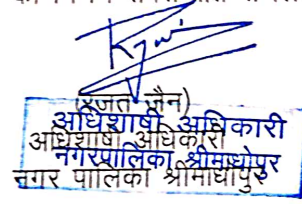 (रजत जैन)
अधिशाषी अधिकारी
अधिशाषी अधिकारी
नगरपालिका श्रीमाधोपुर
नगर पालिका श्रीमाधोपुर